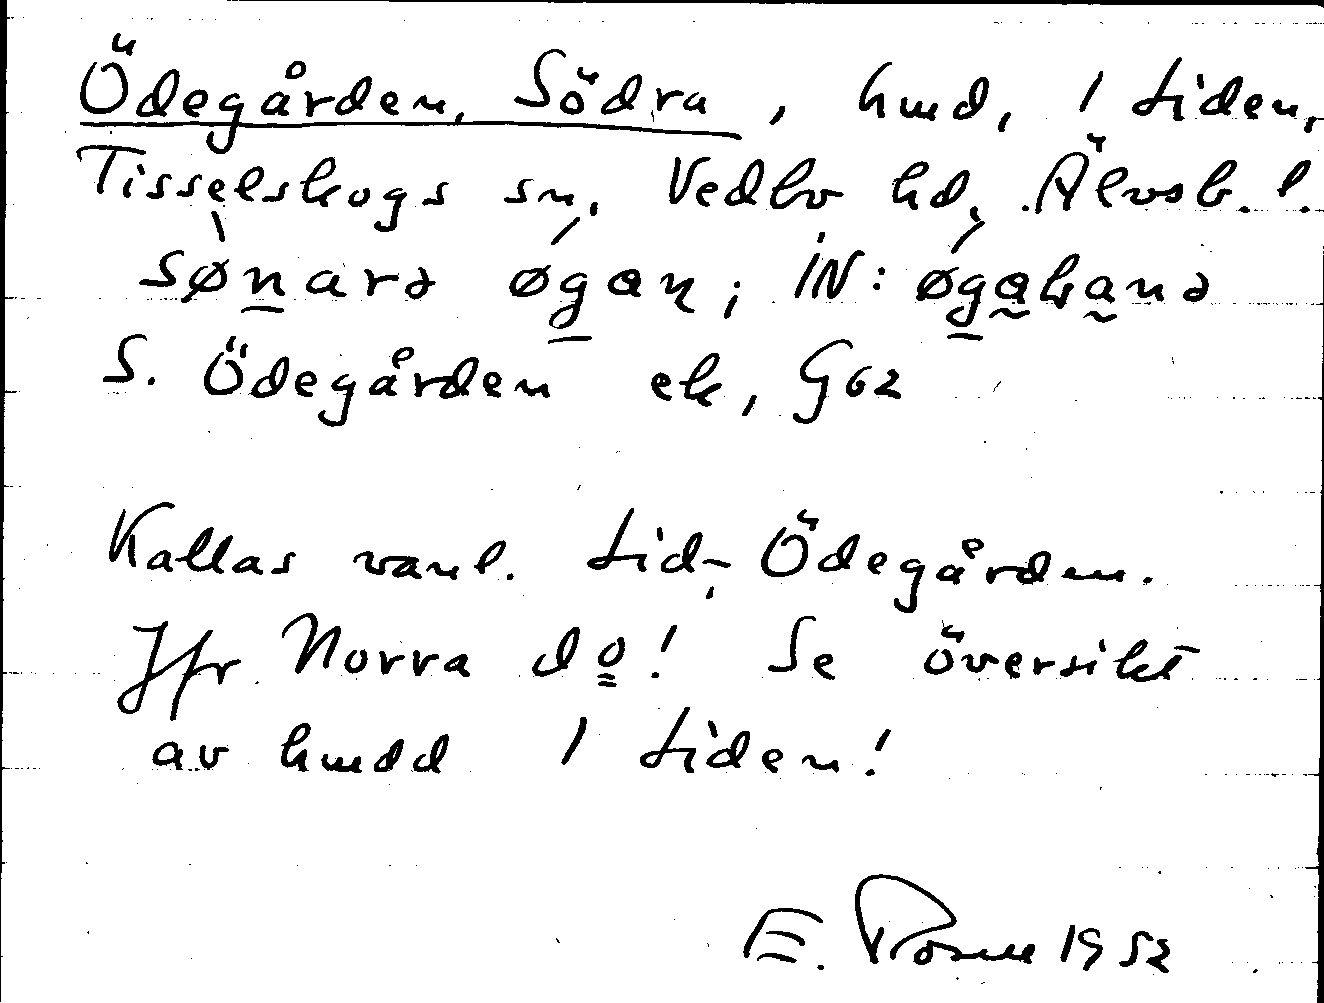 Ödegården, Södra, hmd, 1 tiden,
Tisselskogs sn, Vedbo hd, Älvsb. l.
sønarə øgan; IN: øgakanə
S. Ödegården ek, G62
Kallas vanl. tid-, Ödegården.
Jfr Norra do! Se översikt
av hmdd 1 tiden!
E. Rosell 1952